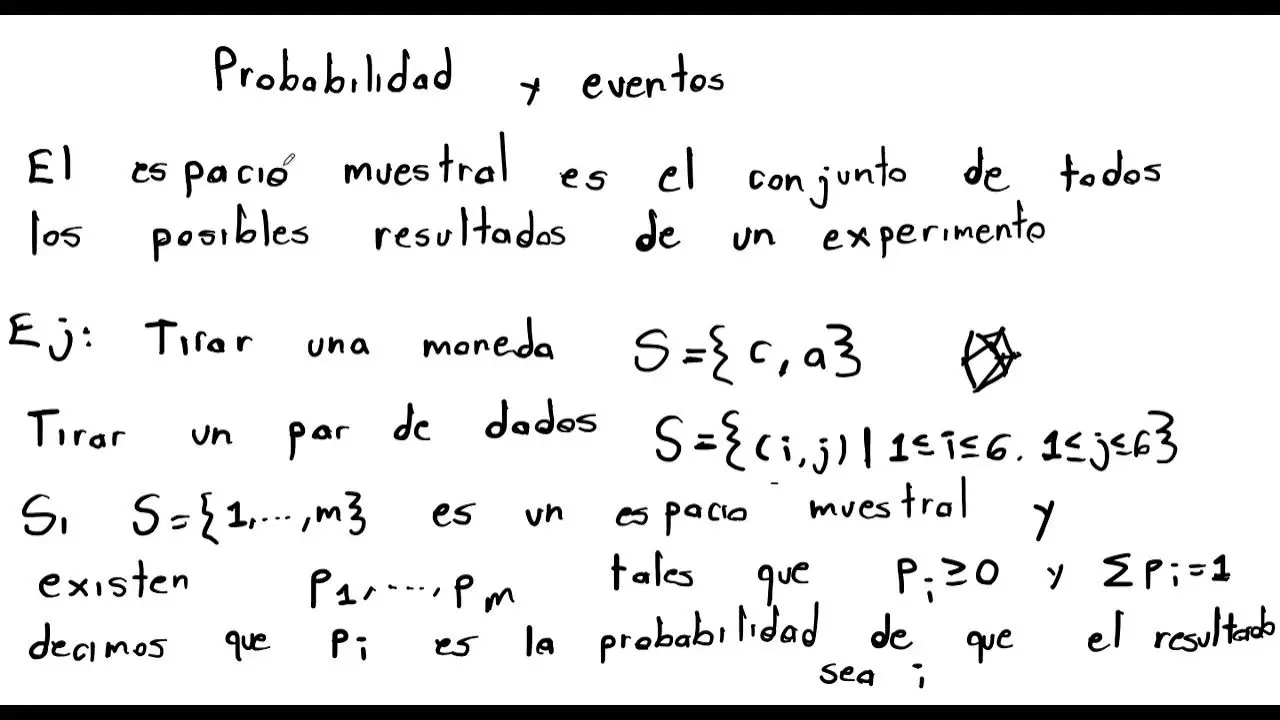 Probabilidad y eventos
El espació muestral es el conjunto de todos
los posibles resultados de un experimento
Ej: Tirar una moneda S={c, a}
Tirar un par de dados S={(i,j) | 1≤i≤6. 1≤j≤6}
Si S={1,...,m} es un espacio muestral y
existen P1,...,Pm tales que Pi≥0 y ΣPi=1
decimos que Pi es la probabilidad de que el resultado
sea i